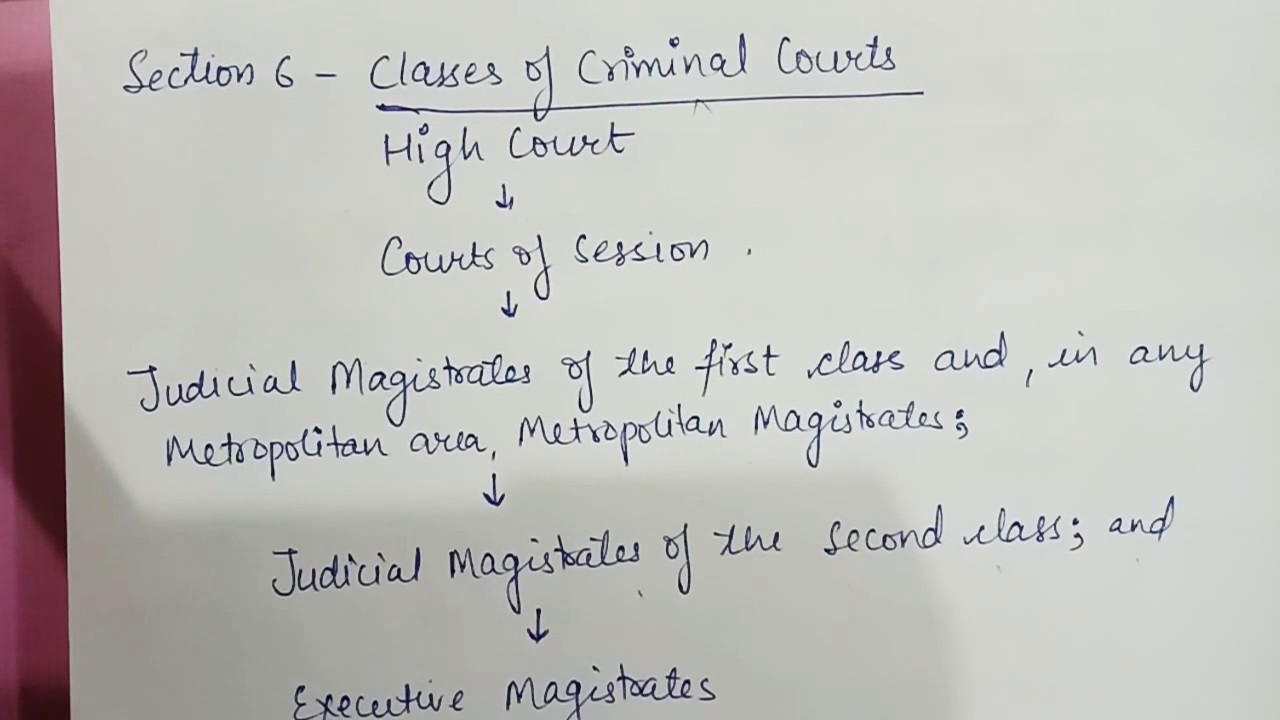 Section 6 - Classes of Criminal Courts
High Court
↓
Courts of session .
↓
Judicial Magistrates of the first class and, in any
Metropolitan area, Metropolitan Magistrates;
↓
Judicial Magistrates of the second class; and
↓
Executive Magistrates